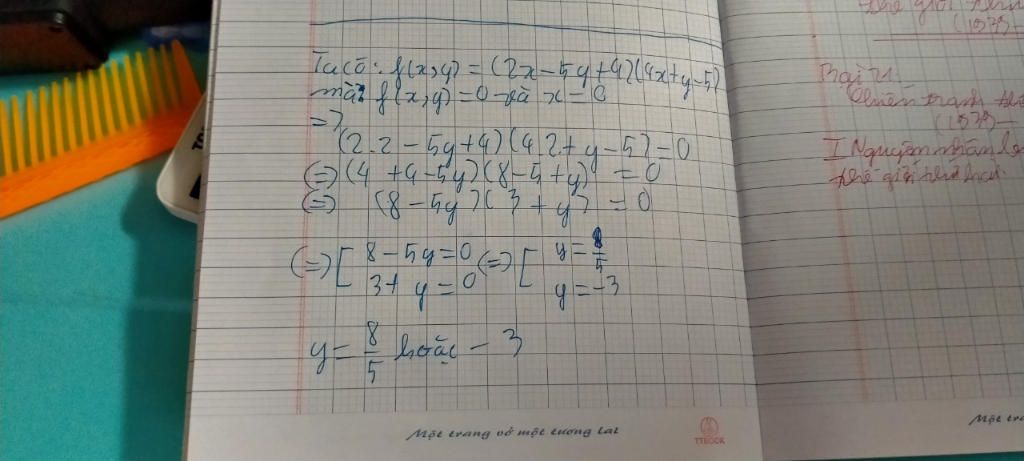 Ta có: f(x,y) = (2x-5y+4)(4x+y-5)
mà f(x,y) = 0 và x = 0
=>
(2.2 - 5y+4)(4.2+y-5) = 0
(=) (4+4-5y)(8-5+y) = 0
(=) (8-5y)(3+y) = 0
(=>) [ 8-5y=0 (=>) [ y = 8/5
3+y=0 y=-3
y = 8/5 hoặc -3
Một trang vở một tương lai
TTBOOK
thế giới
(1939-
Bài 21:
Chiến tranh
(1939-
I Nguyên nhân
thế giới
Một tra